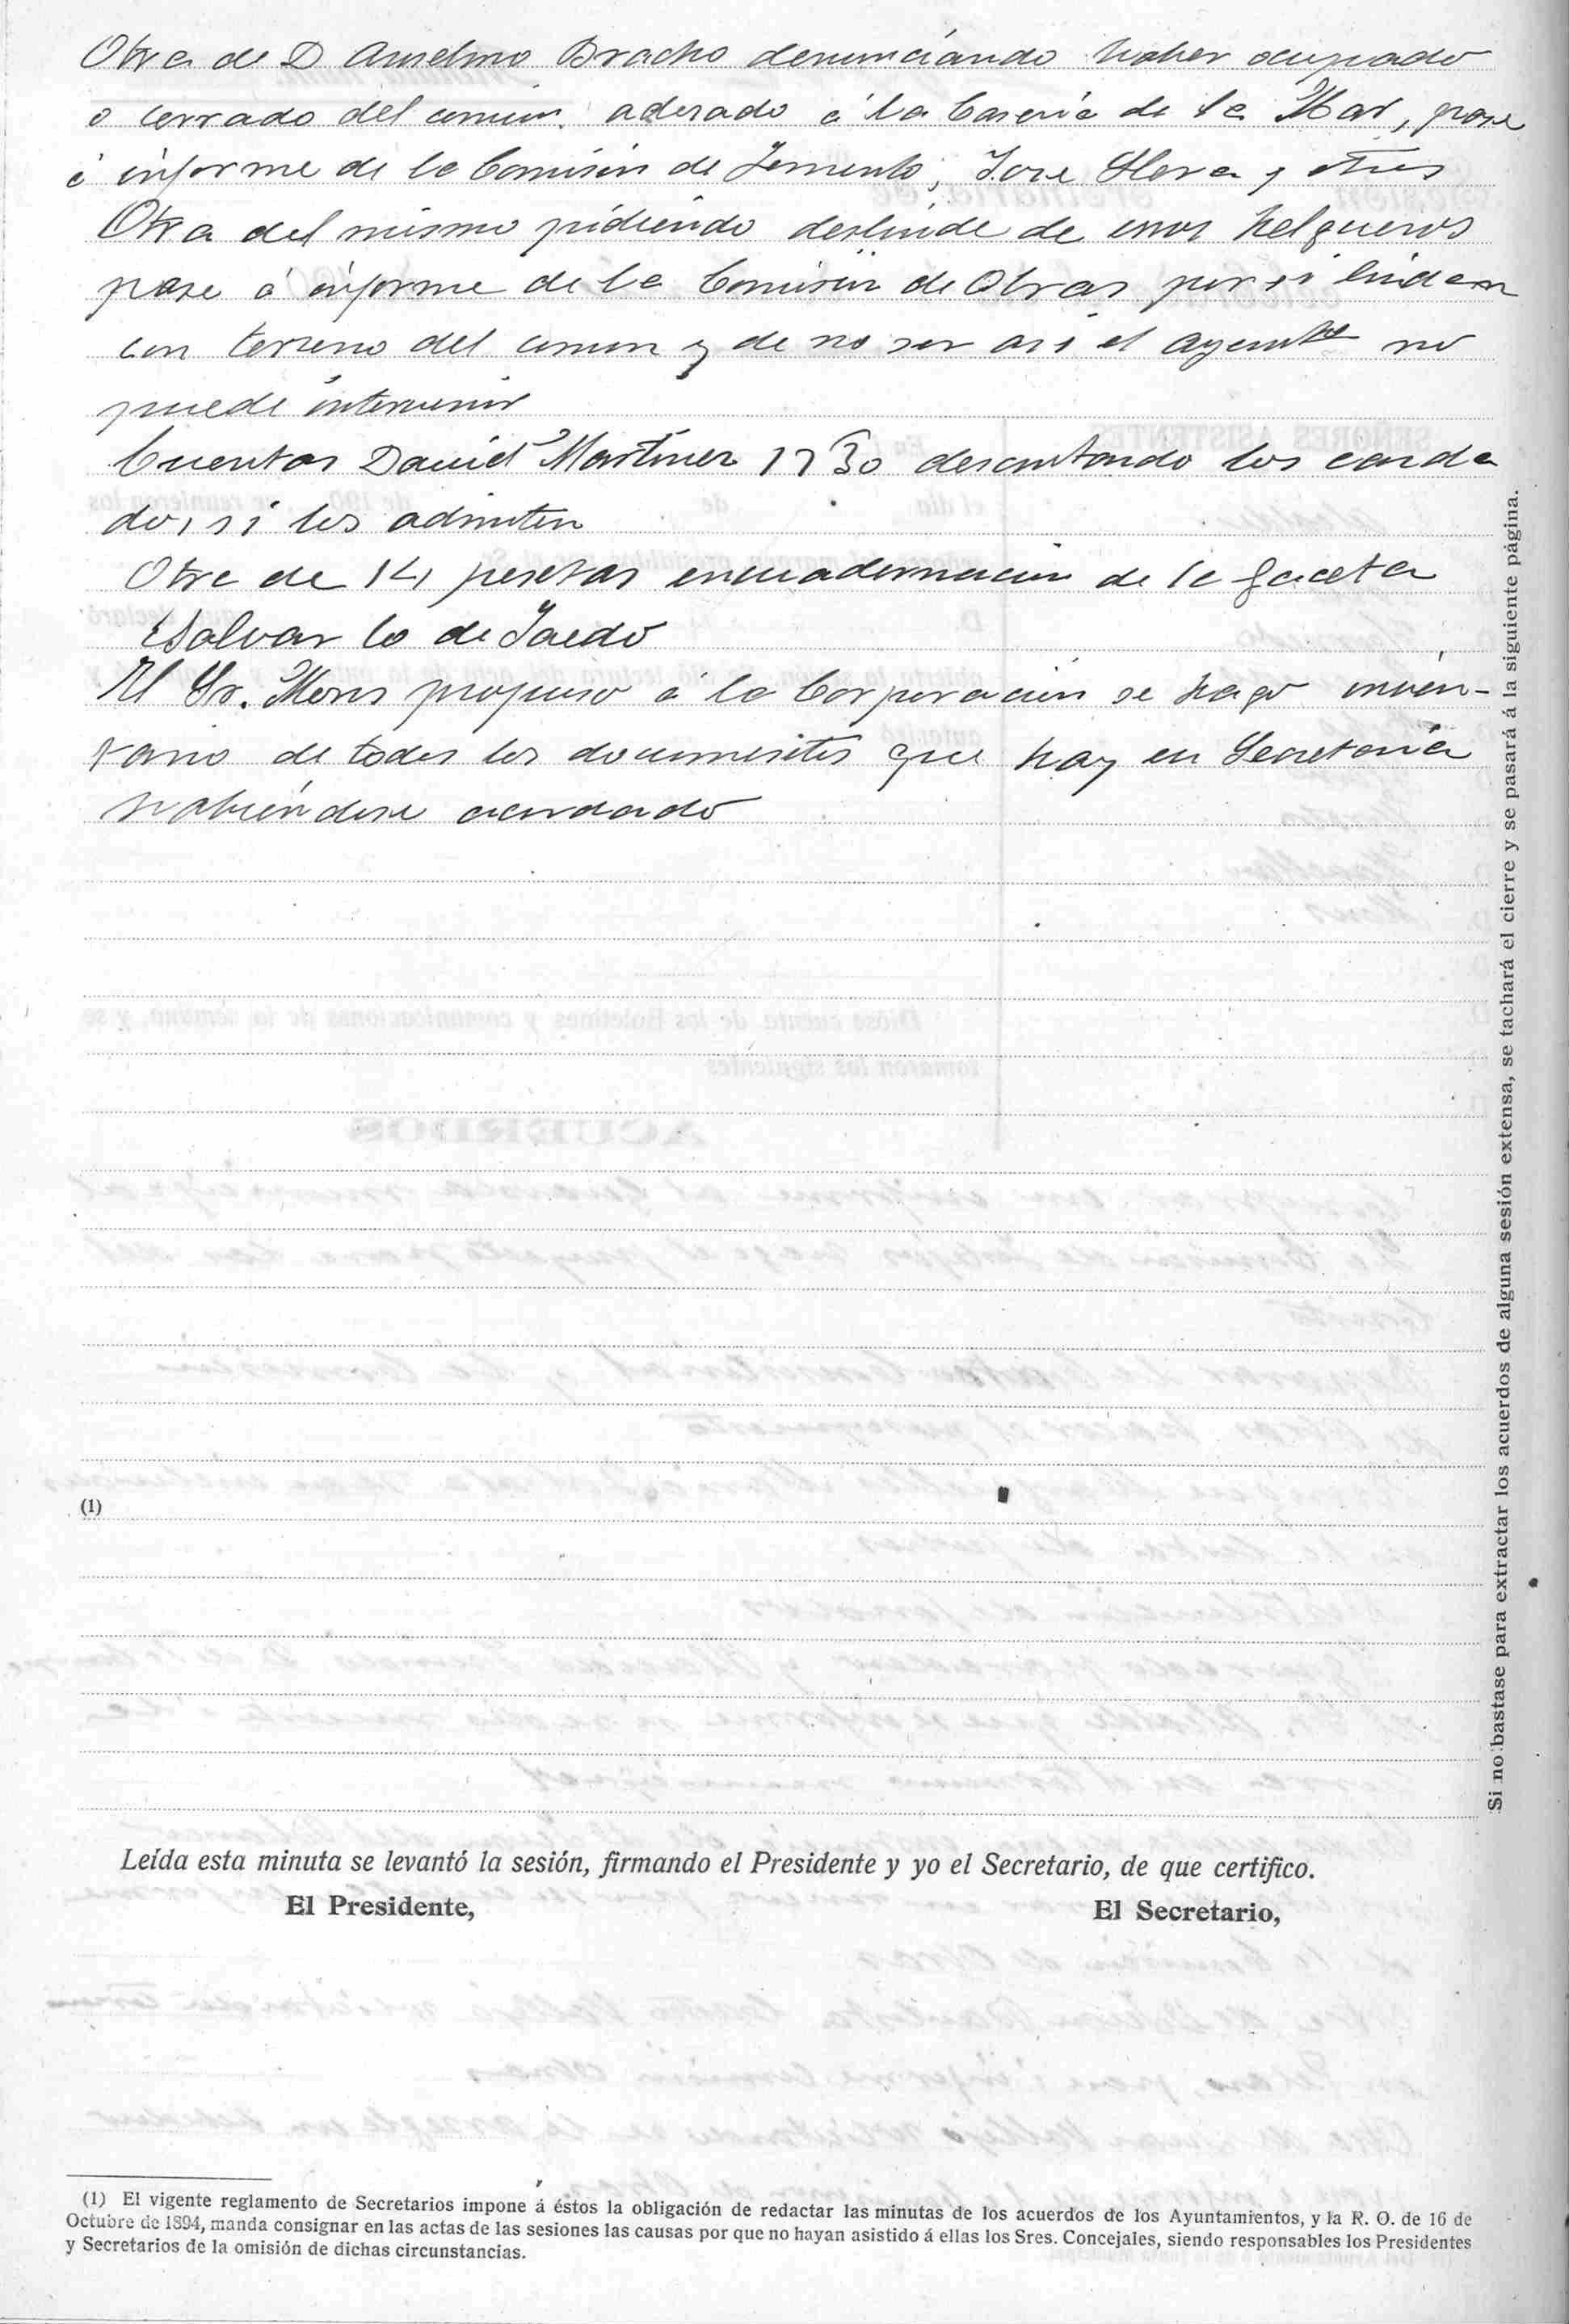 Otra de D Anselmo Bracho denunciando haber ocupado
o cerrado del comun. aderado á la Caseria de la Mar, pase
á informe de la Comisión de Fomento, Jose Llera y otros
Otra del mismo pidiendo deslinde de unos helgueros
pase á informe de la Comisión de Obras por si lindan
con terreno del comun y de no ser asi el Ayunto no
puede intervenir
Cuentas David Martinez 17 30 descontando los canda
dos, si los admiten
Otra de 14 pesetas encuadernación de la gaceta
Salvar lo de Jaedo
El Sr. Mons propuso á la Corporación se haga inven-
tario de todos los documentos que hay en Secretaría
habiéndose acordado
(1)
Leída esta minuta se levantó la sesión, firmando el Presidente y yo el Secretario, de que certifico.
El Presidente,
El Secretario,
(1) El vigente reglamento de Secretarios impone á éstos la obligación de redactar las minutas de los acuerdos de los Ayuntamientos, y la R. O. de 16 de
Octubre de 1894, manda consignar en las actas de las sesiones las causas por que no hayan asistido á ellas los Sres. Concejales, siendo responsables los Presidentes
y Secretarios de la omisión de dichas circunstancias.
Si no bastase para extractar los acuerdos de alguna sesión extensa, se tachará el cierre y se pasará á la siguiente página.